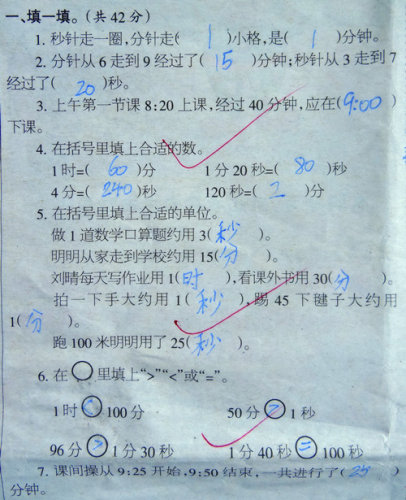 一、填一填。(共 42 分)
1. 秒针走一圈,分针走( 1 )小格,是( 1 )分钟。
2. 分针从 6 走到 9 经过了( 15 )分钟;秒针从 3 走到 7
经过了( 20 )秒。
3. 上午第一节课 8:20 上课,经过 40 分钟,应在( 9:00 )
下课。
4. 在括号里填上合适的数。
1 时=( 60 )分 1 分 20 秒=( 80 )秒
4 分=( 240 )秒 120 秒=( 2 )分
5. 在括号里填上合适的单位。
做 1 道数学口算题约用 3( 秒 )。
明明从家走到学校约用 15( 分 )。
刘晴每天写作业用 1( 时 ),看课外书用 30( 分 )。
拍一下手大约用 1( 秒 ),踢 45 下毽子大约用
1( 分 )。
跑 100 米明明用了 25( 秒 )。
6. 在○里填上“>”“<”或“=”。
1 时 < 100 分 50 分 > 1 秒
96 分 > 1 分 30 秒 1 分 40 秒 = 100 秒
7. 课间操从 9:25 开始,9:50 结束,一共进行了( 25 )
分钟。